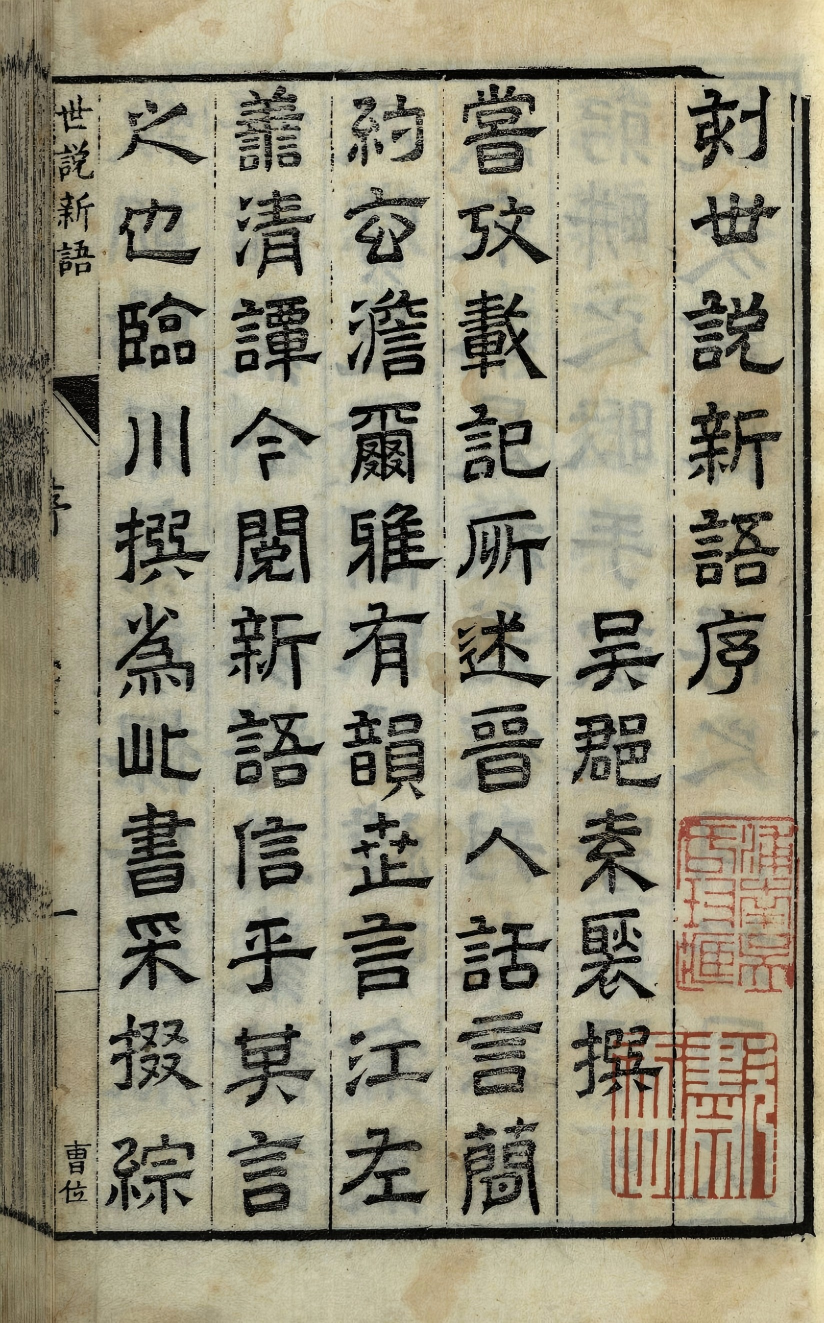 刻世説新語序
吴郡袁褧撰
嘗攷載記所述晉人話言簡
約玄澹爾雅有韻世言江左
譱清譚今閱新語信乎其言
之也臨川撰爲此書采掇綜
世説新語 序 一 曹位